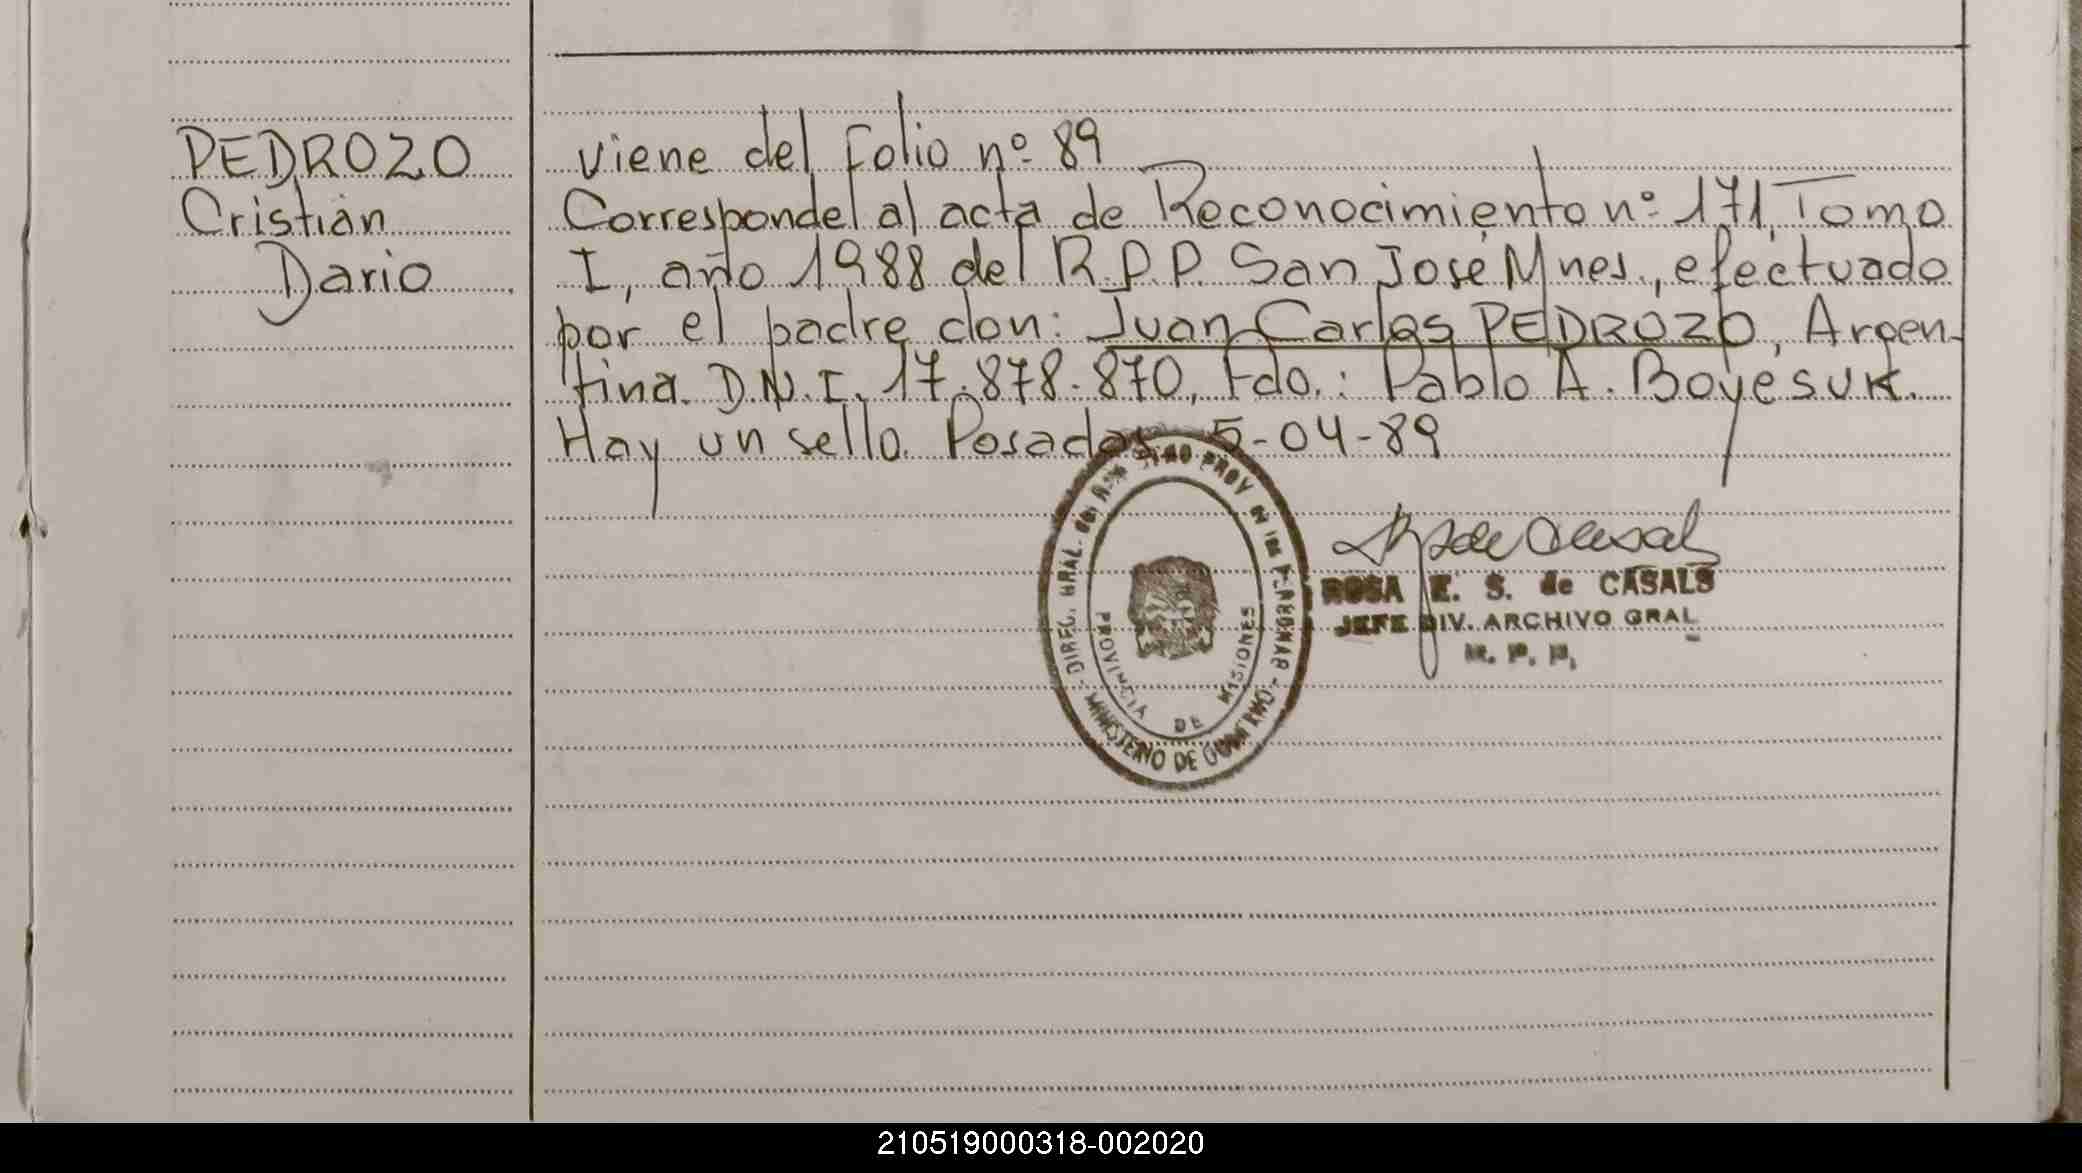 PEDROZO
Cristian
Dario
Viene del Folio nº 89
Corresponde al acta de Reconocimiento nº 171, Tomo
I, año 1988 del R.P.P. San José Mnes., efectuado
por el padre don: Juan Carlos PEDROZO, Argen-
tina. D.N.I. 17.878.870, Fdo.: Pablo A. Boyesuk.
Hay un sello. Posadas, 5-04-89
ROSA E. S. de CASALS
JEFE DIV. ARCHIVO GRAL
R. P. P.
DIREC. GRAL. DEL PROV DE LAS PERSONAS
PROVINCIA DE MISIONES
MINISTERIO DE GOBIERNO
210519000318-002020